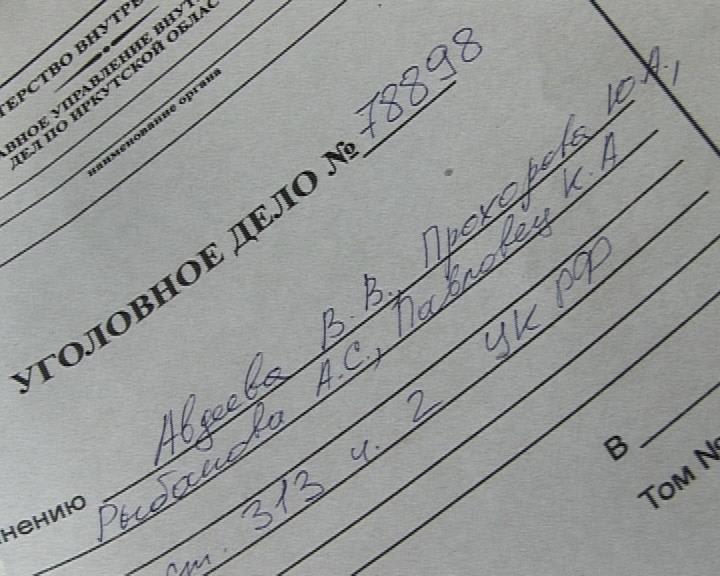 ТЕРСТВО ВНУТРЕ
АВНОЕ УПРАВЛЕНИЕ ВНУТ
ДЕЛ ПО ИРКУТСКОЙ ОБЛАС
наименование органа
УГОЛОВНОЕ ДЕЛО № 78898
нению Авдеева В. В., Прохорова Ю.А.,
Рыбакова А.С., Павловец К.А
ст. 313 ч. 2 УК РФ
В
Том №